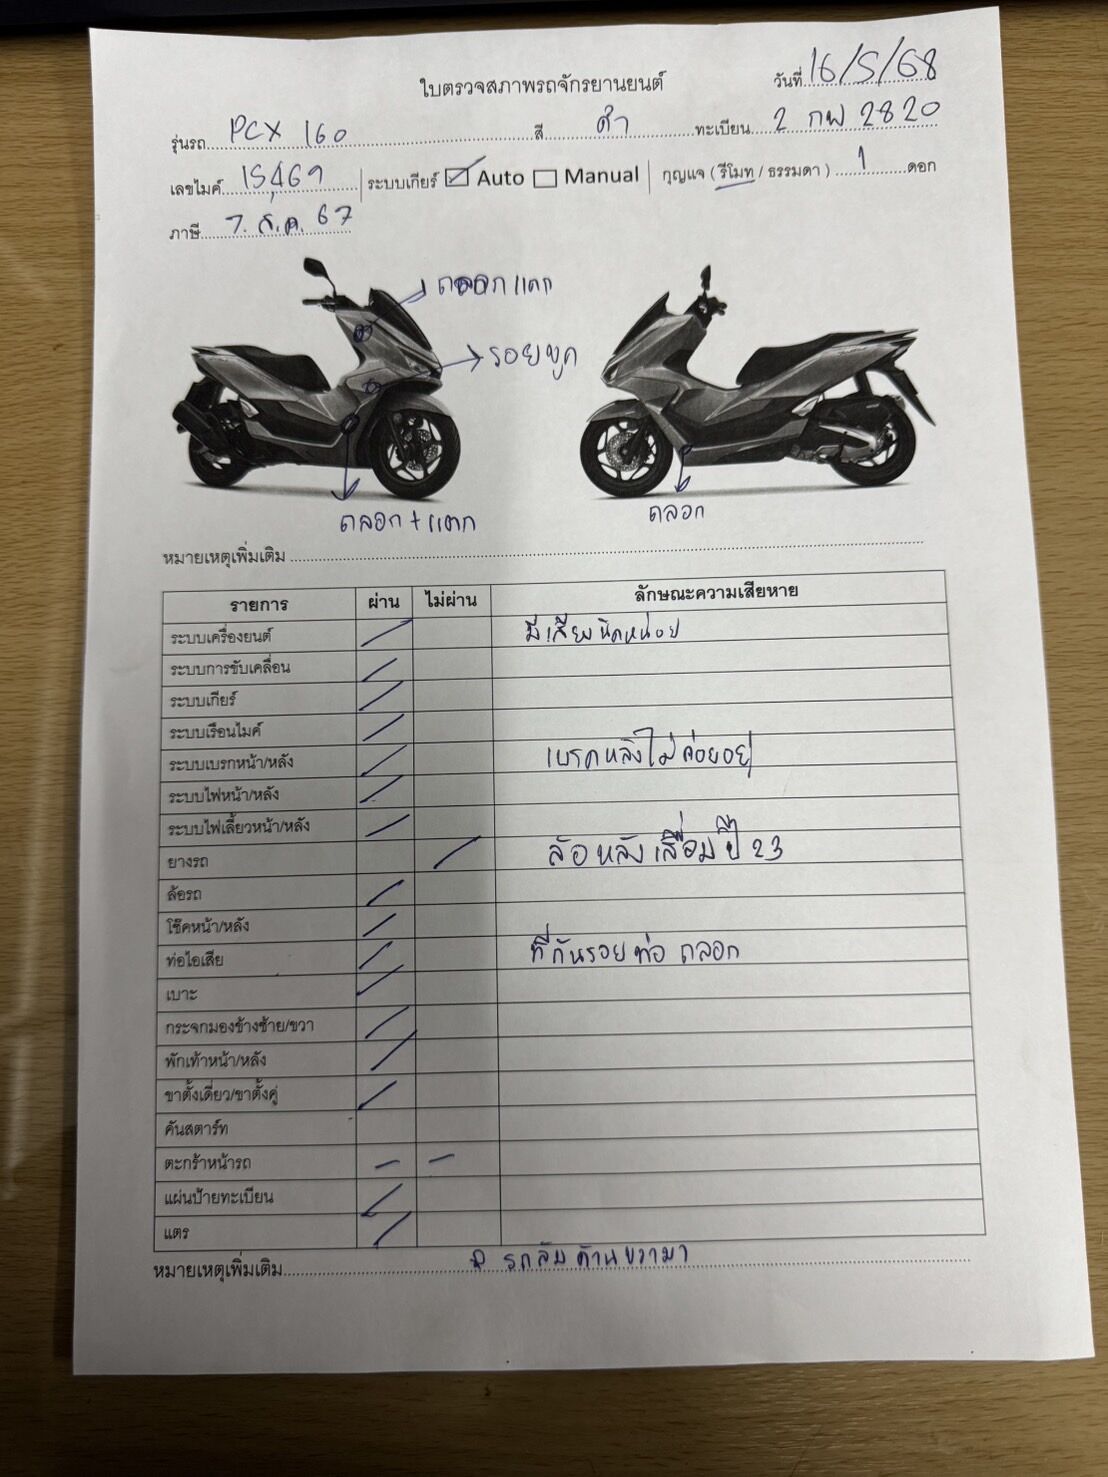 ใบตรวจสภาพรถจักรยานยนต์ วันที่ 16/5/68
รุ่นรถ PCX 160 สี ดำ ทะเบียน 2 กพ 2820
เลขไมค์ 15,469 ระบบเกียร์ Auto Manual กุญแจ ( รีโมท / ธรรมดา ) 1 ดอก
ภาษี 7. ธ.ค. 67
ถลอกแตก
รอยขูด
ถลอก + แตก
ถลอก
หมายเหตุเพิ่มเติม
รายการ ผ่าน ไม่ผ่าน ลักษณะความเสียหาย
ระบบเครื่องยนต์ มีเสียงนิดหน่อย
ระบบการขับเคลื่อน
ระบบเกียร์
ระบบเรือนไมค์
ระบบเบรกหน้า/หลัง เบรคหลังไม่ค่อยอยู่
ระบบไฟหน้า/หลัง
ระบบไฟเลี้ยวหน้า/หลัง
ยางรถ ล้อหลังเสื่อมปี 23
ล้อรถ
โช๊คหน้า/หลัง
ท่อไอเสีย ที่กันรอยท่อ ถลอก
เบาะ
กระจกมองข้างซ้าย/ขวา
พักเท้าหน้า/หลัง
ขาตั้งเดี่ยว/ขาตั้งคู่
คันสตาร์ท
ตะกร้าหน้ารถ - -
แผ่นป้ายทะเบียน
แตร
หมายเหตุเพิ่มเติม รถล้มด้านขวามา